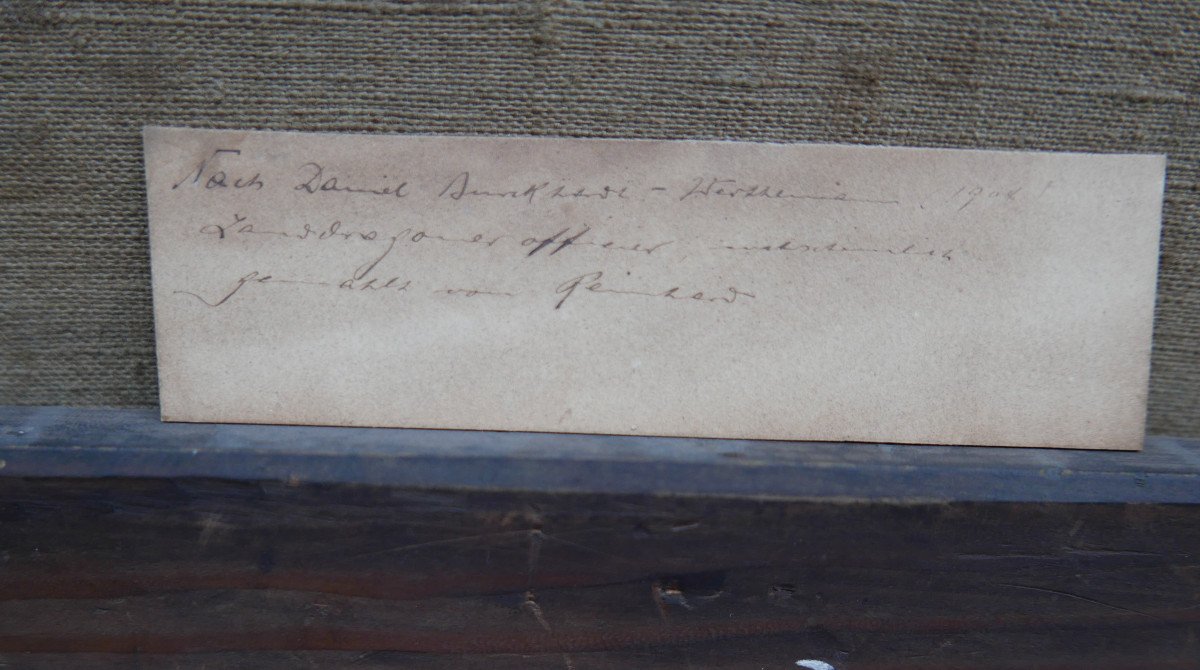 Nach Daniel Burckhardt - Werthemann, 1908
Landdragoner officier, wahrscheinlich
gemahlt von Reinhard